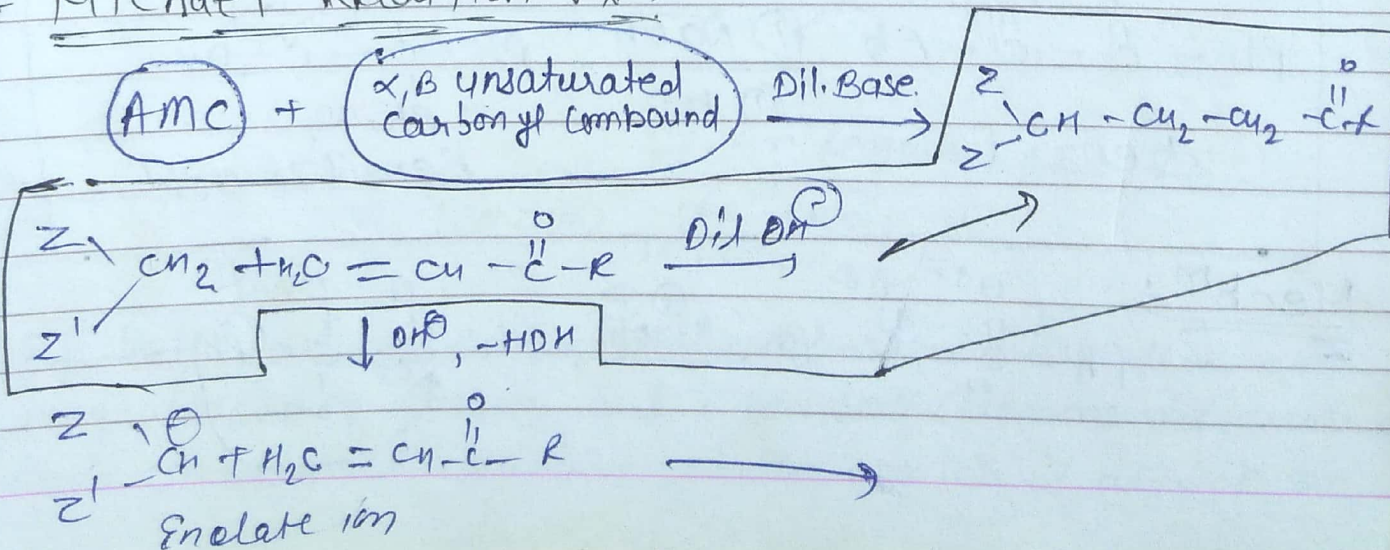 AMC + α,β unsaturated carbonyl compound Dil. Base. →
Z Z' CH - CH2 - CH2 - C(=O) - R
Z Z' CH2 + H2C = CH - C(=O) - R Dil OH⊖ →
↓ OH⊖, -HOH
Z Z' CH⊖ + H2C = CH - C(=O) - R →
Enolate ion